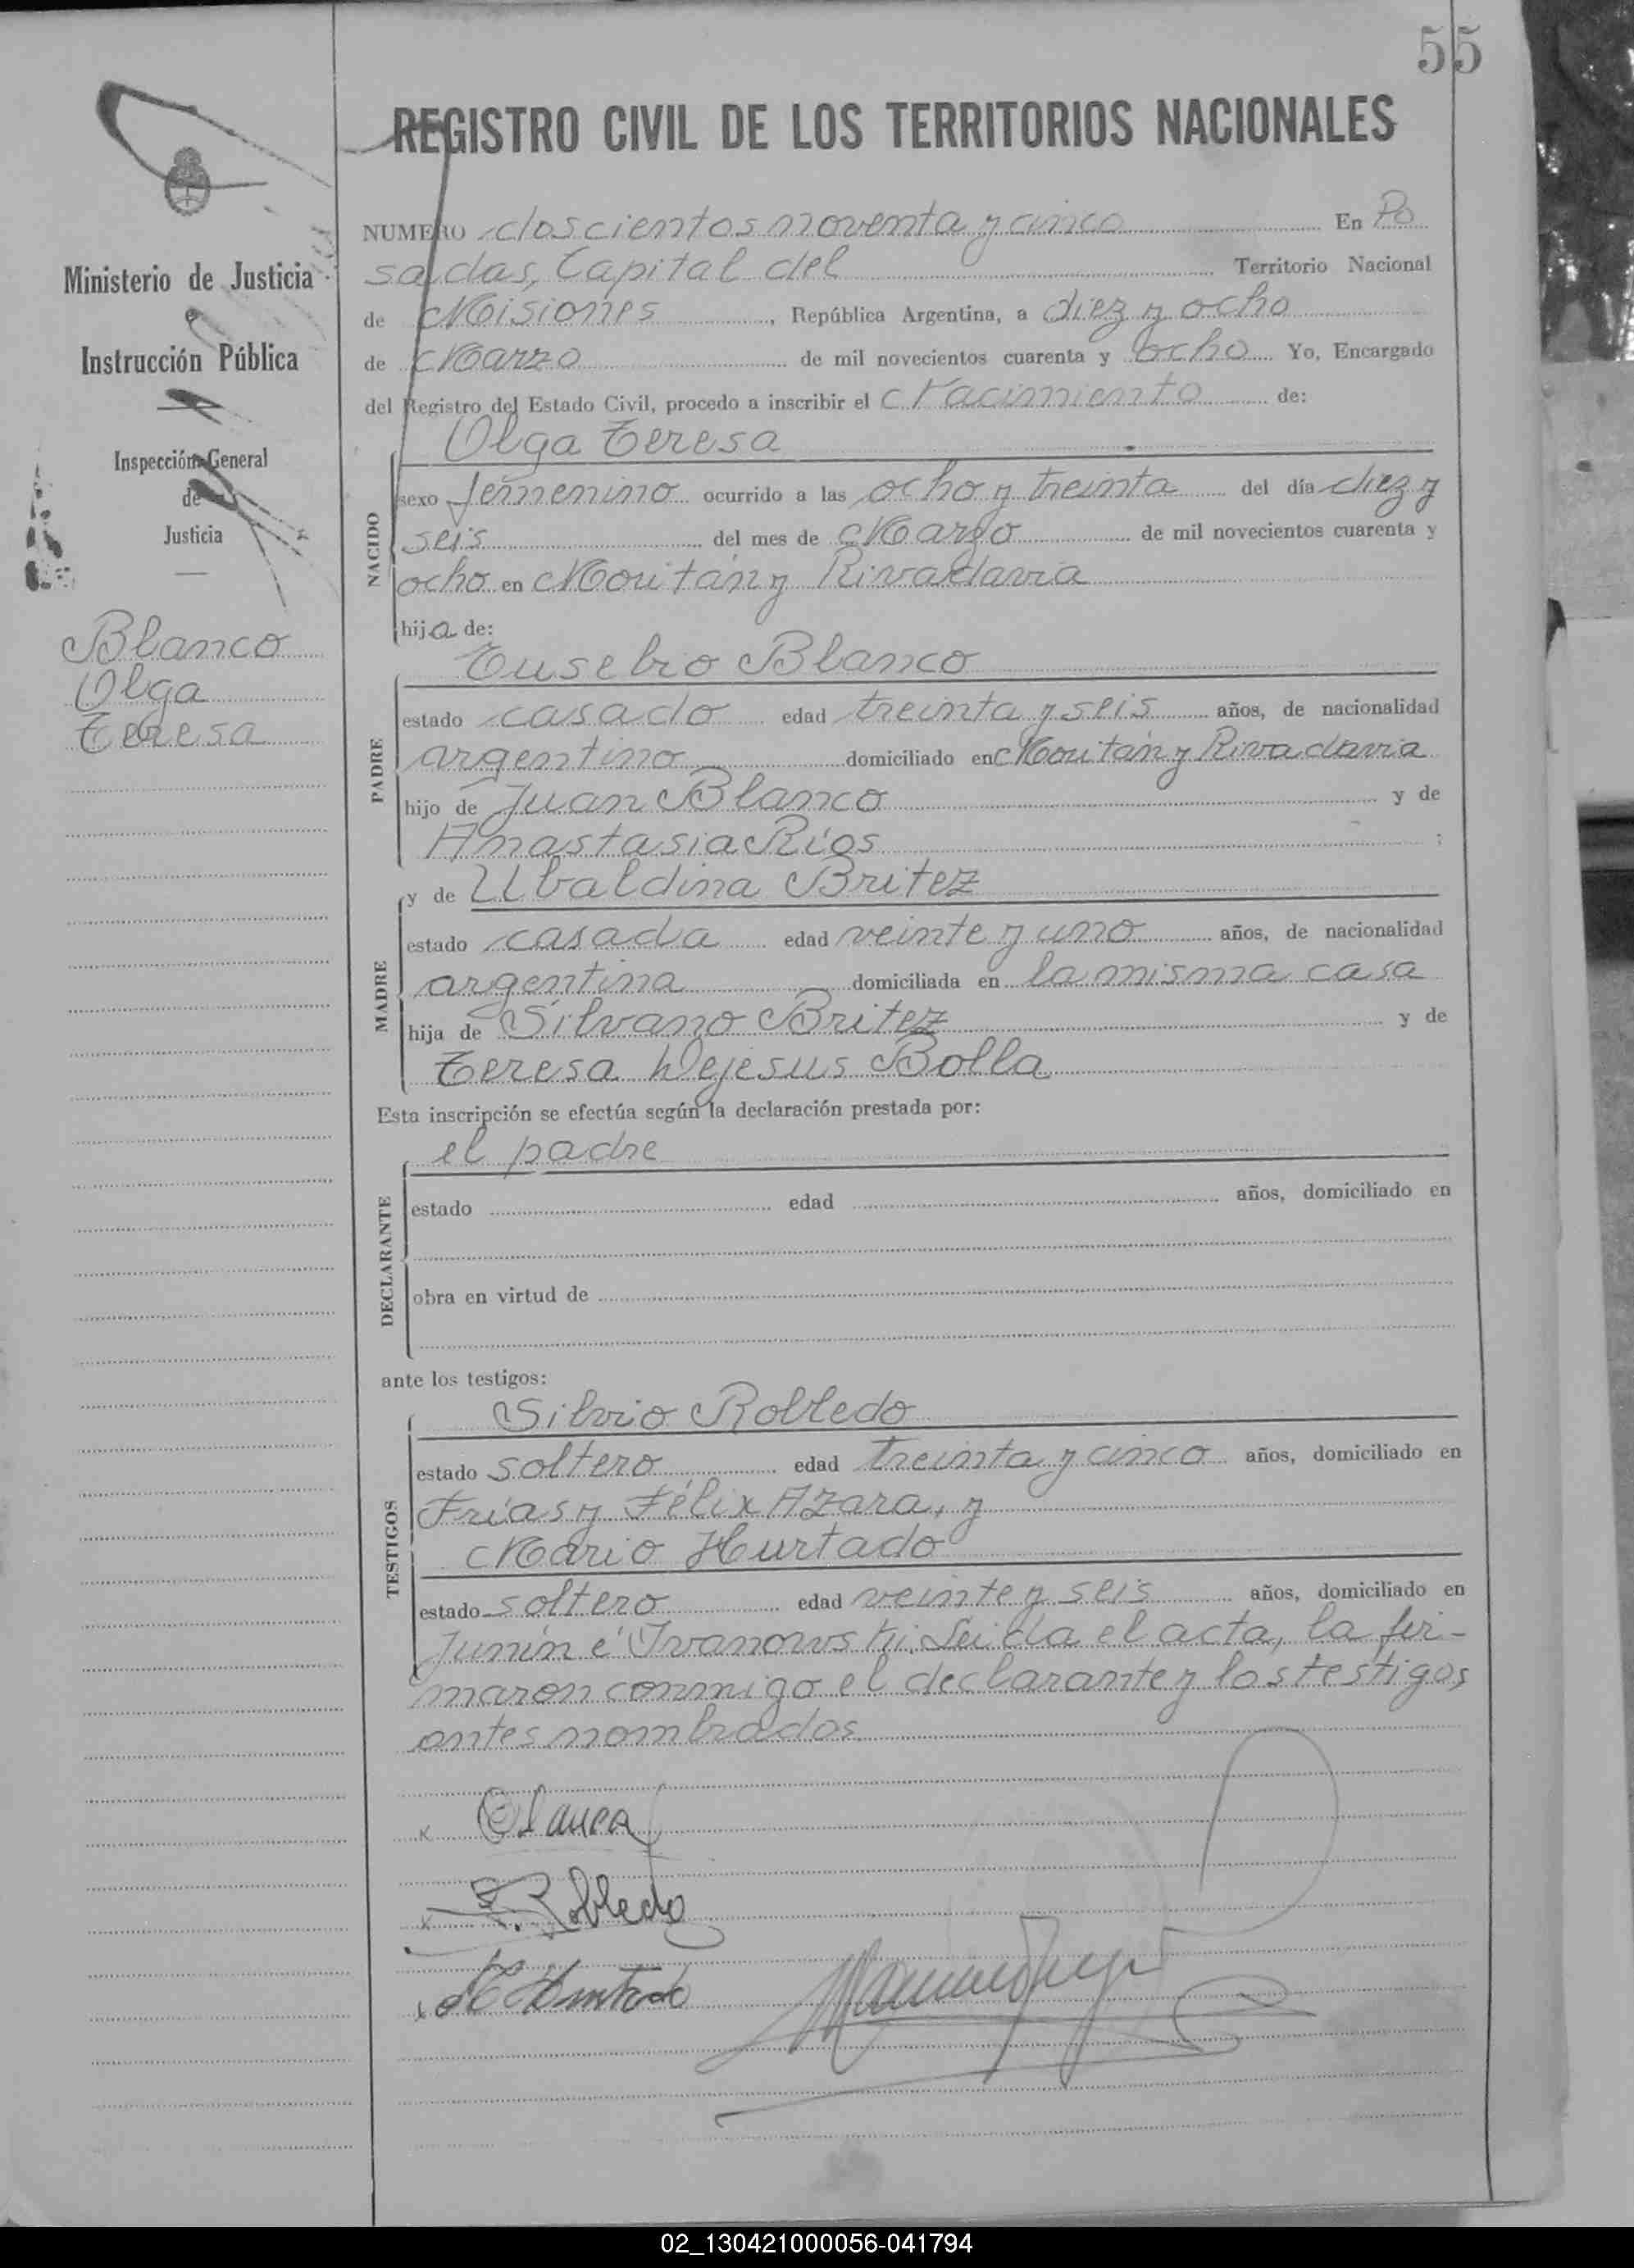 55
REGISTRO CIVIL DE LOS TERRITORIOS NACIONALES
Ministerio de Justicia
Instrucción Pública
Inspección General
de
Justicia
Blanco
Olga
Teresa
NUMERO doscientos noventa y cinco En Po
sadas, Capital del Territorio Nacional
de Misiones, República Argentina, a diez y ocho
de Marzo de mil novecientos cuarenta y ocho Yo, Encargado
del Registro del Estado Civil, procedo a inscribir el Nacimiento de:
Olga Teresa
NACIDO
sexo femenino ocurrido a las ocho y treinta del día diez y
seis del mes de Marzo de mil novecientos cuarenta y
ocho en Moután y Rivadavia
hija de:
Eusebio Blanco
PADRE
estado casado edad treinta y seis años, de nacionalidad
argentino domiciliado en Moután y Rivadavia
hijo de Juan Blanco y de
Anastasia Ríos ;
y de Ubaldina Britez
MADRE
estado casada edad veinte y uno años, de nacionalidad
argentina domiciliada en la misma casa
hija de Silvano Britez y de
Teresa Dejesus Bolla
Esta inscripción se efectúa según la declaración prestada por:
el padre
DECLARANTE
estado edad años, domiciliado en
obra en virtud de
ante los testigos:
Silvio Robledo
TESTIGOS
estado soltero edad treinta y cinco años, domiciliado en
Frías y Félix Azara, y
Mario Hurtado
estado soltero edad veinte y seis años, domiciliado en
Junín é Ivanowski. Leida el acta, la fir-
maron conmigo el declarante y los testigos
antes nombrados
x
x S. Robledo
x Hurtado
02_130421000056-041794